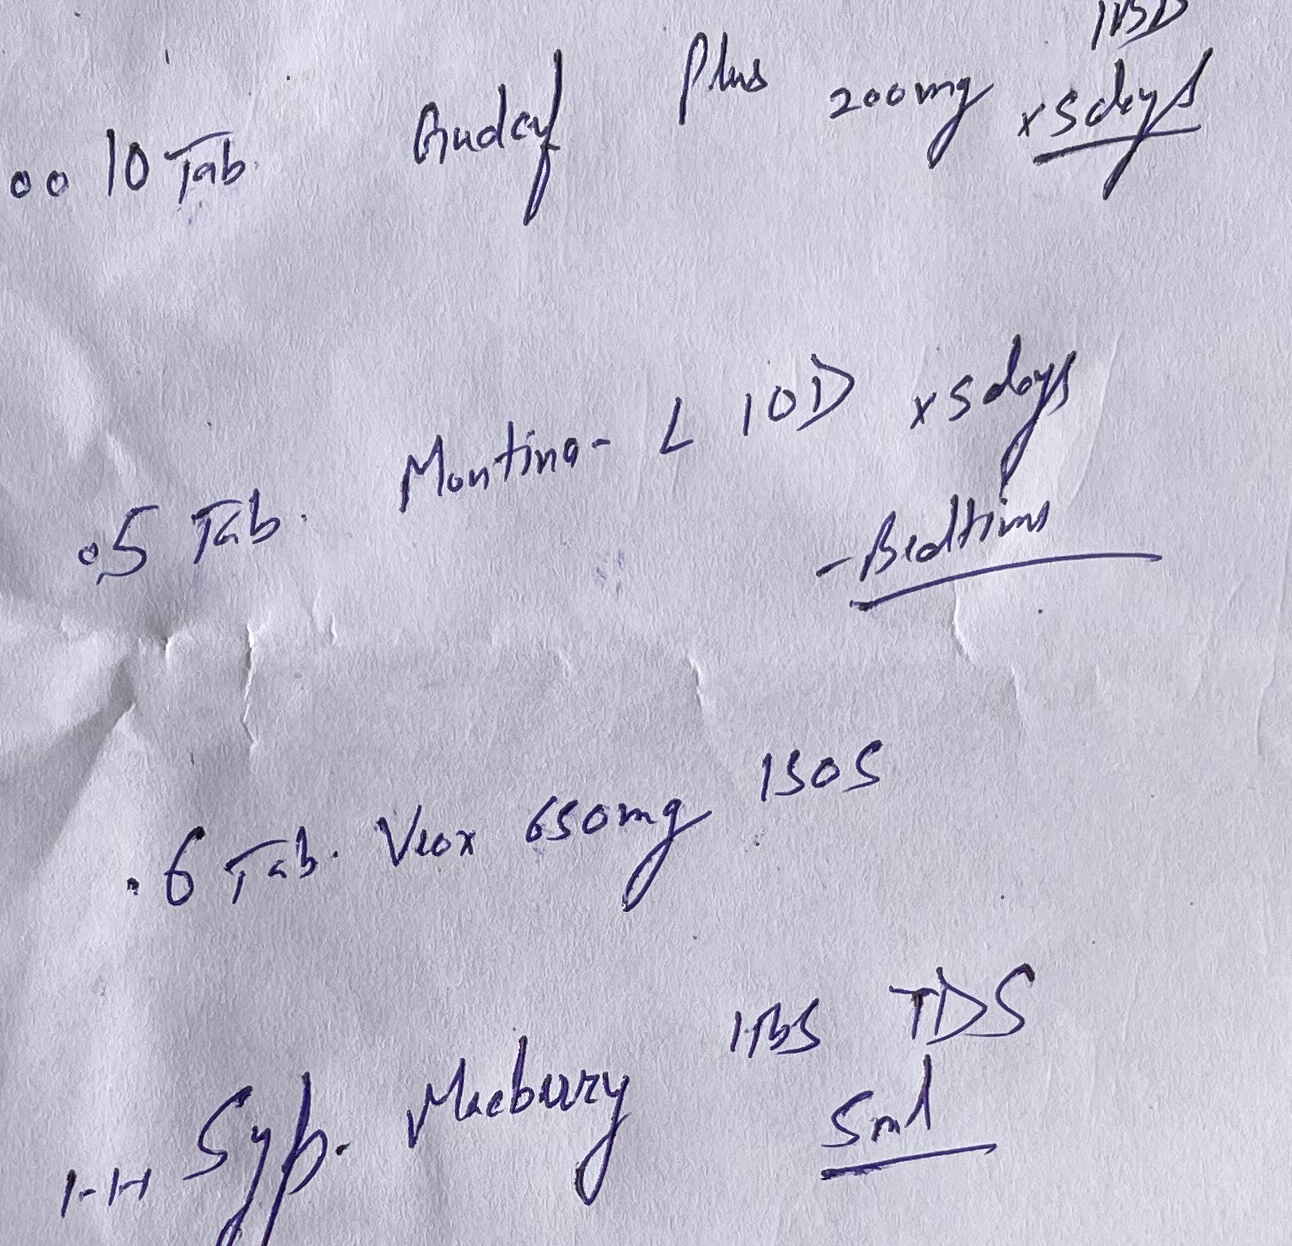 10 Tab. Gudcef Plus 200mg 1BD x5days
5 Tab. Montina-L 1OD x5days
- Bedtime
6 Tab. 650mg 1SOS
1-1-1 Syp. Macberry TDS
5ml